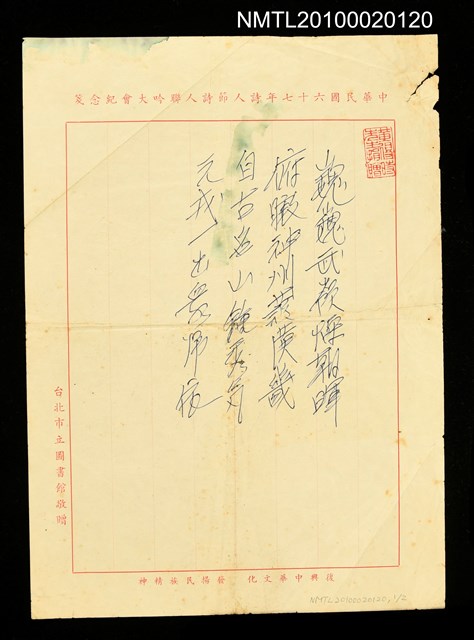 NMTL20100020120
中華民國六十七年詩人節詩人聯吟大會紀念箋
巍巍武嶺燦朝暉
俯瞰神州護廣畿
自古名山鍾秀氣
元戎一出眾師依
台北市立圖書館敬贈
復興中華文化 發揚民族精神
NMTL20100020120, 1/2